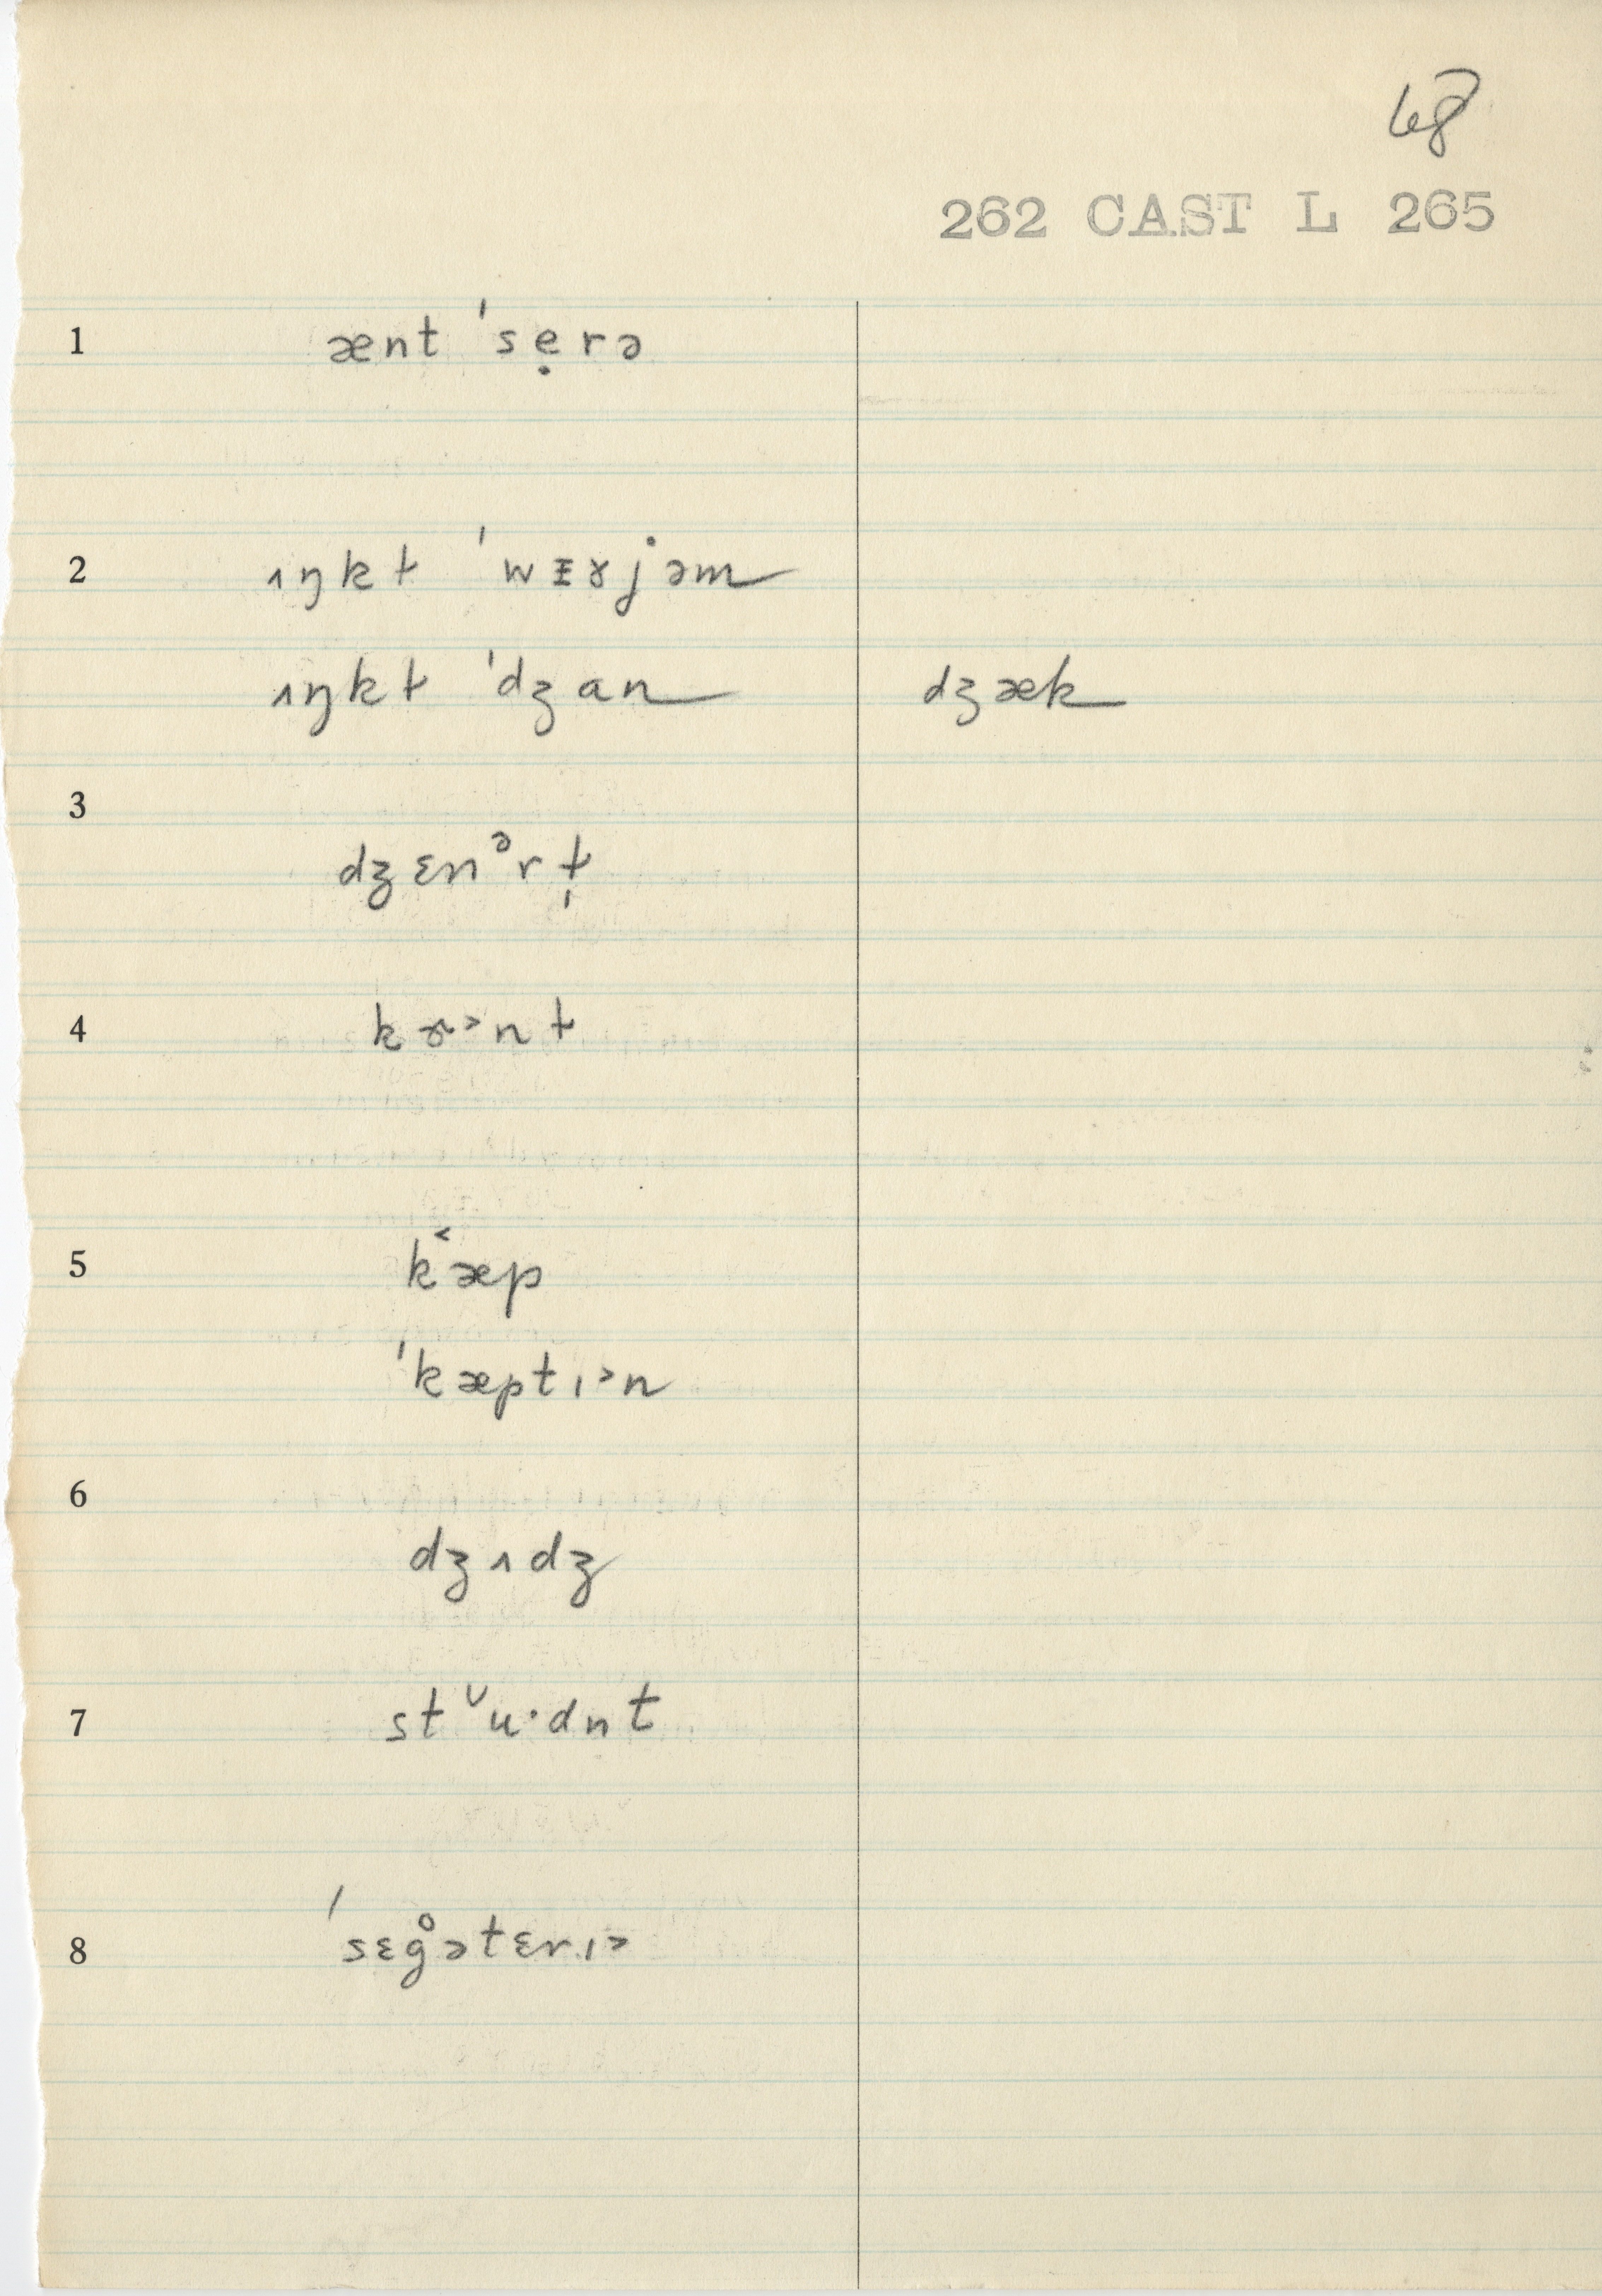 68
262 CAST L 265
1 ænt ˈsẹrə
2 ɪŋkɫ ˈwᵻɤjəm
ɪŋkɫ ˈdʒan dʒæk
3
dʒɛnᵊrɫ̩
4 kɝ˃nɫ
5 k˂æp
ˈkæptɪ˃n
6
dʒɪdʒ
7 st˅uˑdnt
8 ˈsɛg̊ətɛrɪ˃